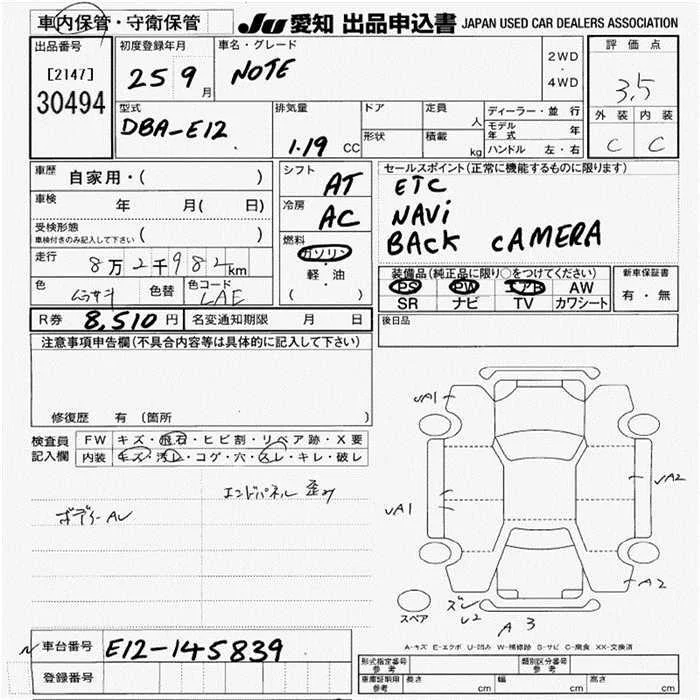 車内保管・守衛保管
JU 愛知 出品申込書 JAPAN USED CAR DEALERS ASSOCIATION
出品番号
[2147]
30494
初度登録年月
25 9 月
車名・グレード
NOTE
2WD
・
4WD
評価点
3.5
外装 内装
C C
型式
DBA-E12
排気量
1.19 CC
ドア
形状
定員 人
積載 kg
ディーラー・並行
モデル年式 年
ハンドル 左・右
車歴 自家用・( )
車検 年 月( 日)
受検形態
車検付きのみ記入して下さい ( )
走行 8万2千982km
色 ムラサキ 色替 色コード LAE
シフト AT
冷房 AC
燃料
ガソリン
・
軽・油
( )
セールスポイント(正常に機能するものに限ります)
ETC
NAVi
BACK CAMERA
装備品(純正品に限り○をつけてください)
PS PW エアB AW
SR ナビ TV カワシート
新車保証書
有・無
R券 8,510 円 名変通知期限 月 日
後日品
注意事項申告欄(不具合内容等は具体的に記入して下さい)
修復歴 有 (箇所 )
検査員記入欄
FW キズ・飛石・ヒビ割・リペア跡・X要
内装 キズ・汚レ・コゲ・穴・スレ・キレ・破レ
エンドパネル 歪み
ボデーAU
UA1
UA1
UA2
A2
ズレ
U2
A 3
スペア
A-キズ E-エクボ U-凹み W-補修跡 S-サビ C-腐食 XX-交換済
車台番号 E12-145839
登録番号
型式指定番号 参考
類別区分番号 参考
車庫証明期限 参考
長さ cm 幅 cm 高さ cm